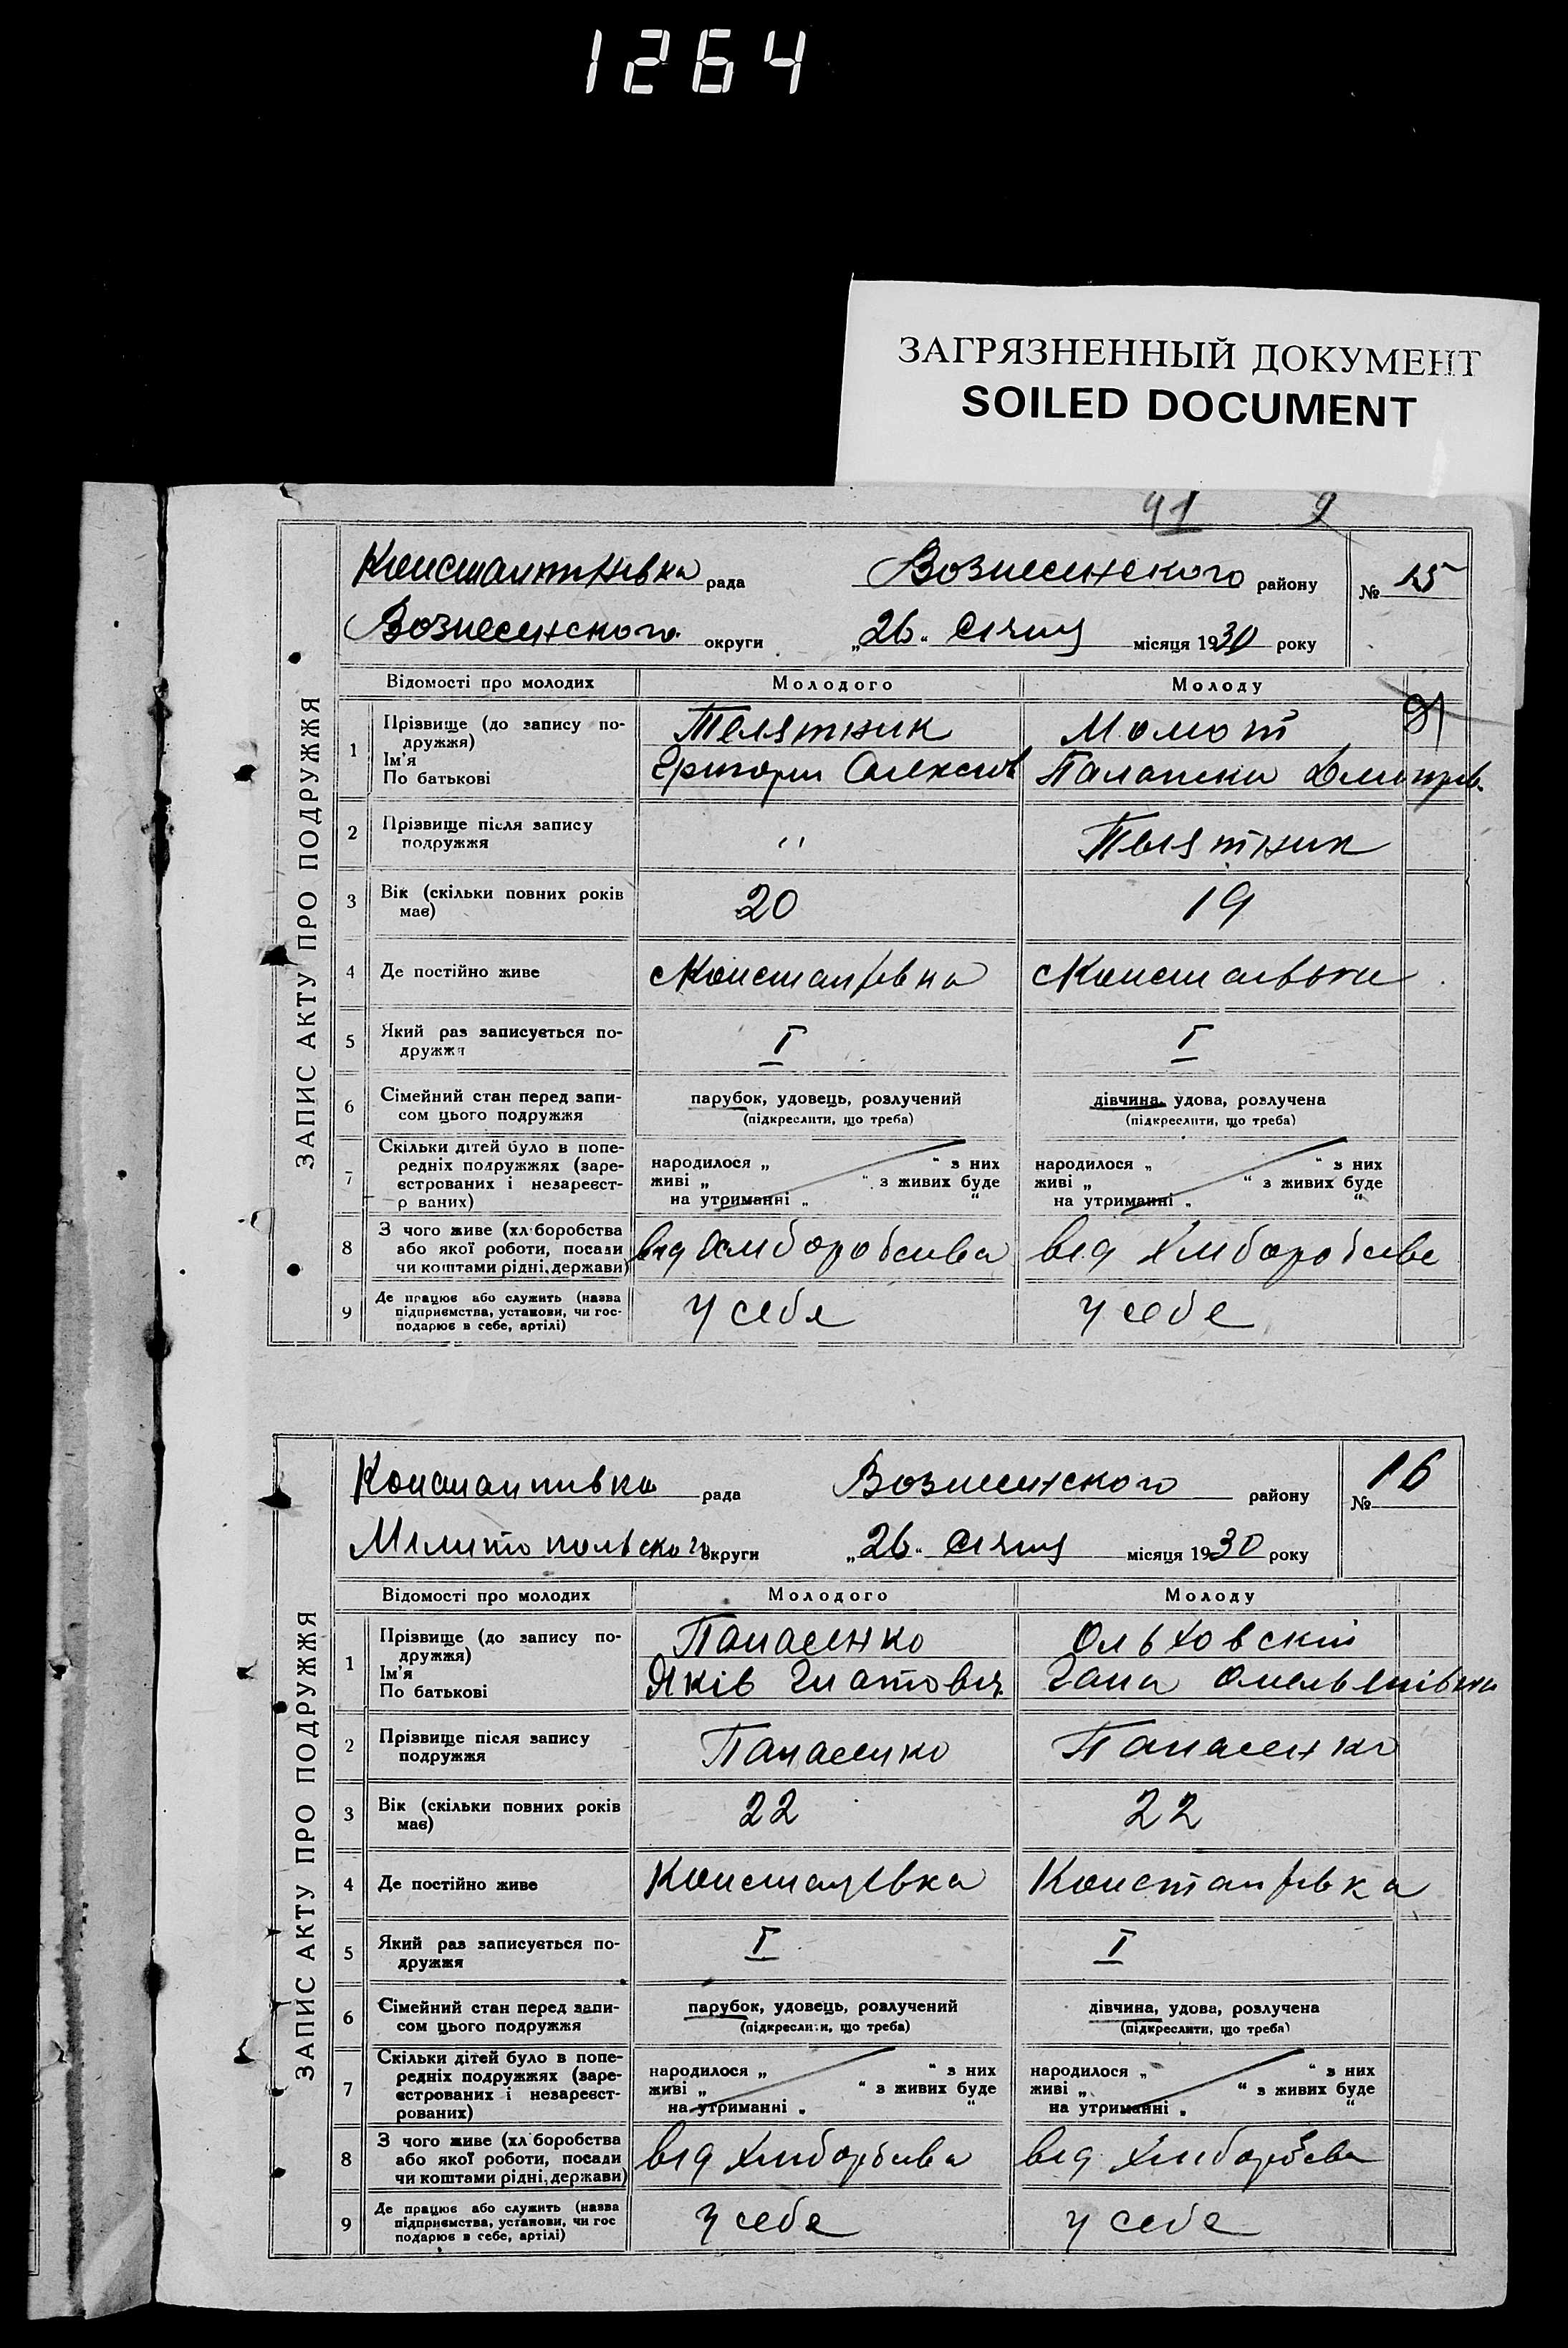 1264
ЗАГРЯЗНЕННЫЙ ДОКУМЕНТ
SOILED DOCUMENT
41 9
ЗАПИС АКТУ ПРО ПОДРУЖЖЯ
Константнівка рада Вознесенского району № 15
Вознесенского округи „26" Січня місяця 1930 року
Відомості про молодих Молодого Молоду
1 Прізвище (до запису по-
дружжя) Телятник Момот
Ім'я
По батькові Григорій Олексієв Палашка Дмитрів.
2 Прізвище після запису
подружжя " Телятник
3 Вік (скільки повних років
має) 20 19
4 Де постійно живе Константівка
5 Який раз записується по-
дружжя I I
6 Сімейний стан перед запи-
сом цього подружжя парубок, удовець, розлучений дівчина, удова, розлучена
(підкреслити, що треба) (підкреслити, що треба)
7 Скільки дітей було в попе-
редніх подружжях (заре-
єстрованих і незареєст-
р ваних) народилося „ " з них народилося „ " з них
живі „ " з живих буде живі „ " з живих буде
на утриманні „ " на утриманні „ "
8 З чого живе (хл боробства
або якої роботи, посади
чи коштами рідні, держави) від від
9 Де працює або служить (назва
підприємства, установи, чи гос-
подарює в себе, артілі) у себе у себе
ЗАПИС АКТУ ПРО ПОДРУЖЖЯ
Константнівка рада Вознесенского району № 16
Мелитопольского округи „26" Січня місяця 1930 року
Відомості про молодих Молодого Молоду
1 Прізвище (до запису по-
дружжя) Панасенко Ольховскій
Ім'я
По батькові Яків Гнатович Гана Омельянівна
2 Прізвище після запису
подружжя Панасенко Панасенко
3 Вік (скільки повних років
має) 22 22
4 Де постійно живе Константівка Константівка
5 Який раз записується по-
дружжя I I
6 Сімейний стан перед запи-
сом цього подружжя парубок, удовець, розлучений дівчина, удова, розлучена
(підкреслити, що треба) (підкреслити, що треба)
7 Скільки дітей було в попе-
редніх подружжях (заре-
єстрованих і незареєст-
рованих) народилося „ " з них народилося „ " з них
живі „ " з живих буде живі „ " з живих буде
на утриманні „ " на утриманні „ "
8 З чого живе (хл боробства
або якої роботи, посади
чи коштами рідні, держави) від від
9 Де працює або служить (назва
підприємства, установи, чи гос
подарює в себе, артілі) у себе у себе